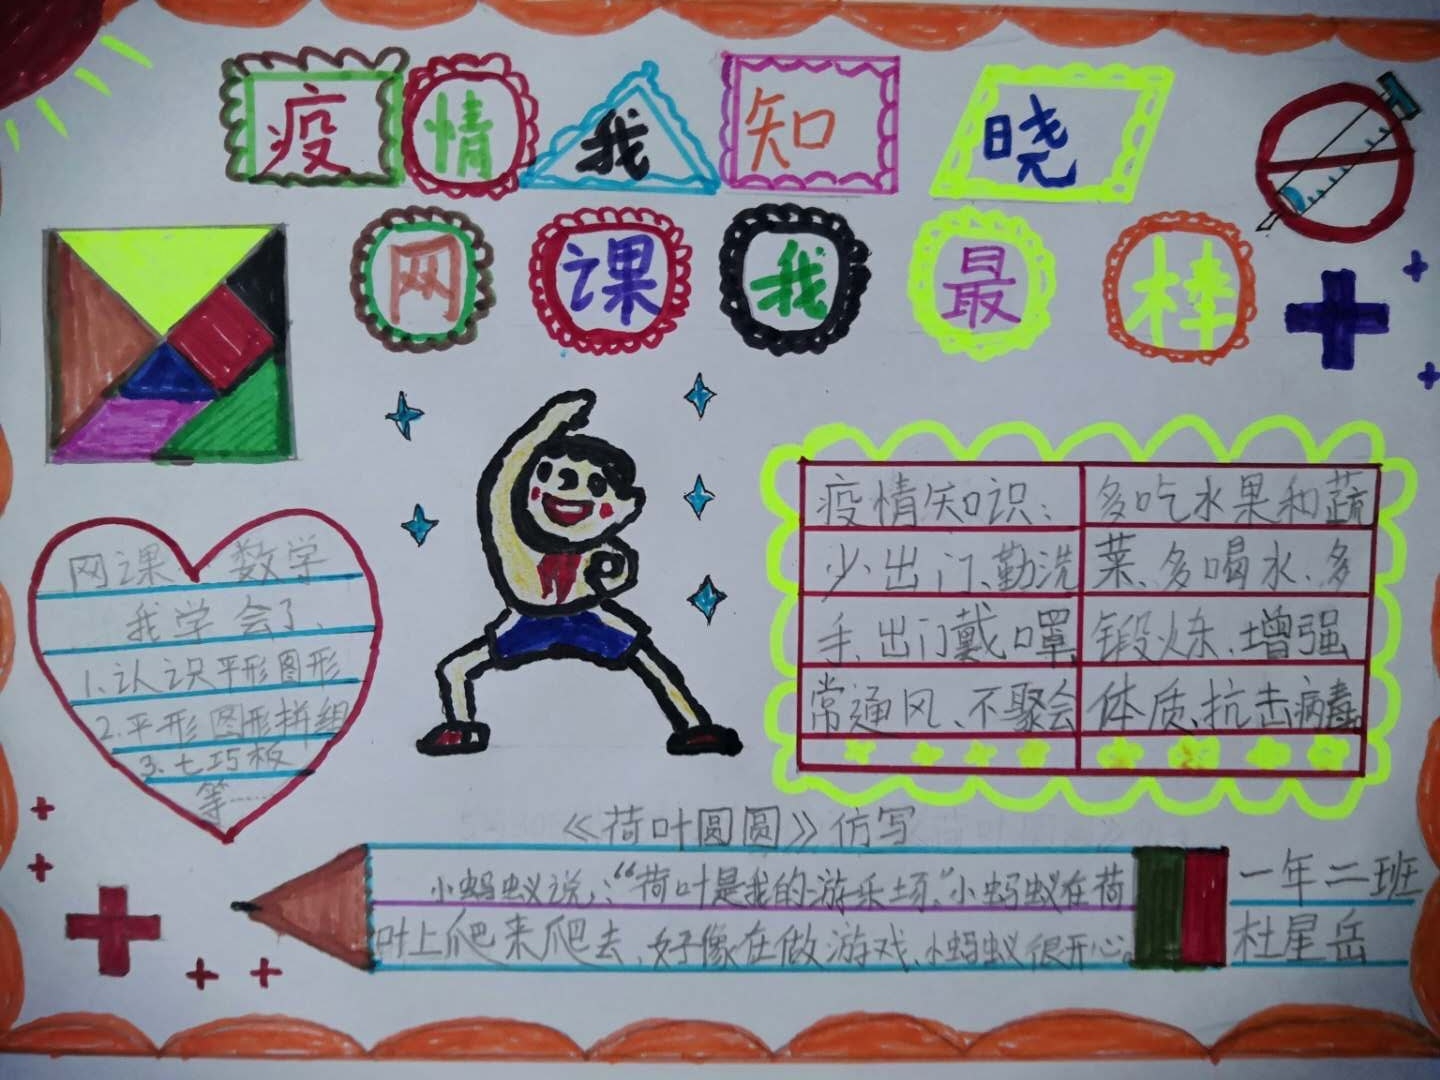 疫情我知晓
网课我最棒
网课 数学
我学会了、
1.认识平形图形
2.平形图形拼组
3.七巧板
等……
疫情知识:
少出门、勤洗
手、出门戴口罩、
常通风、不聚会
多吃水果和蔬
菜、多喝水、多
锻炼、增强
体质、抗击病毒。
《荷叶圆圆》仿写
小蚂蚁说:“荷叶是我的游乐场。”小蚂蚁在荷
叶上爬来爬去,好像在做游戏,小蚂蚁很开心。
一年二班
杜星岳